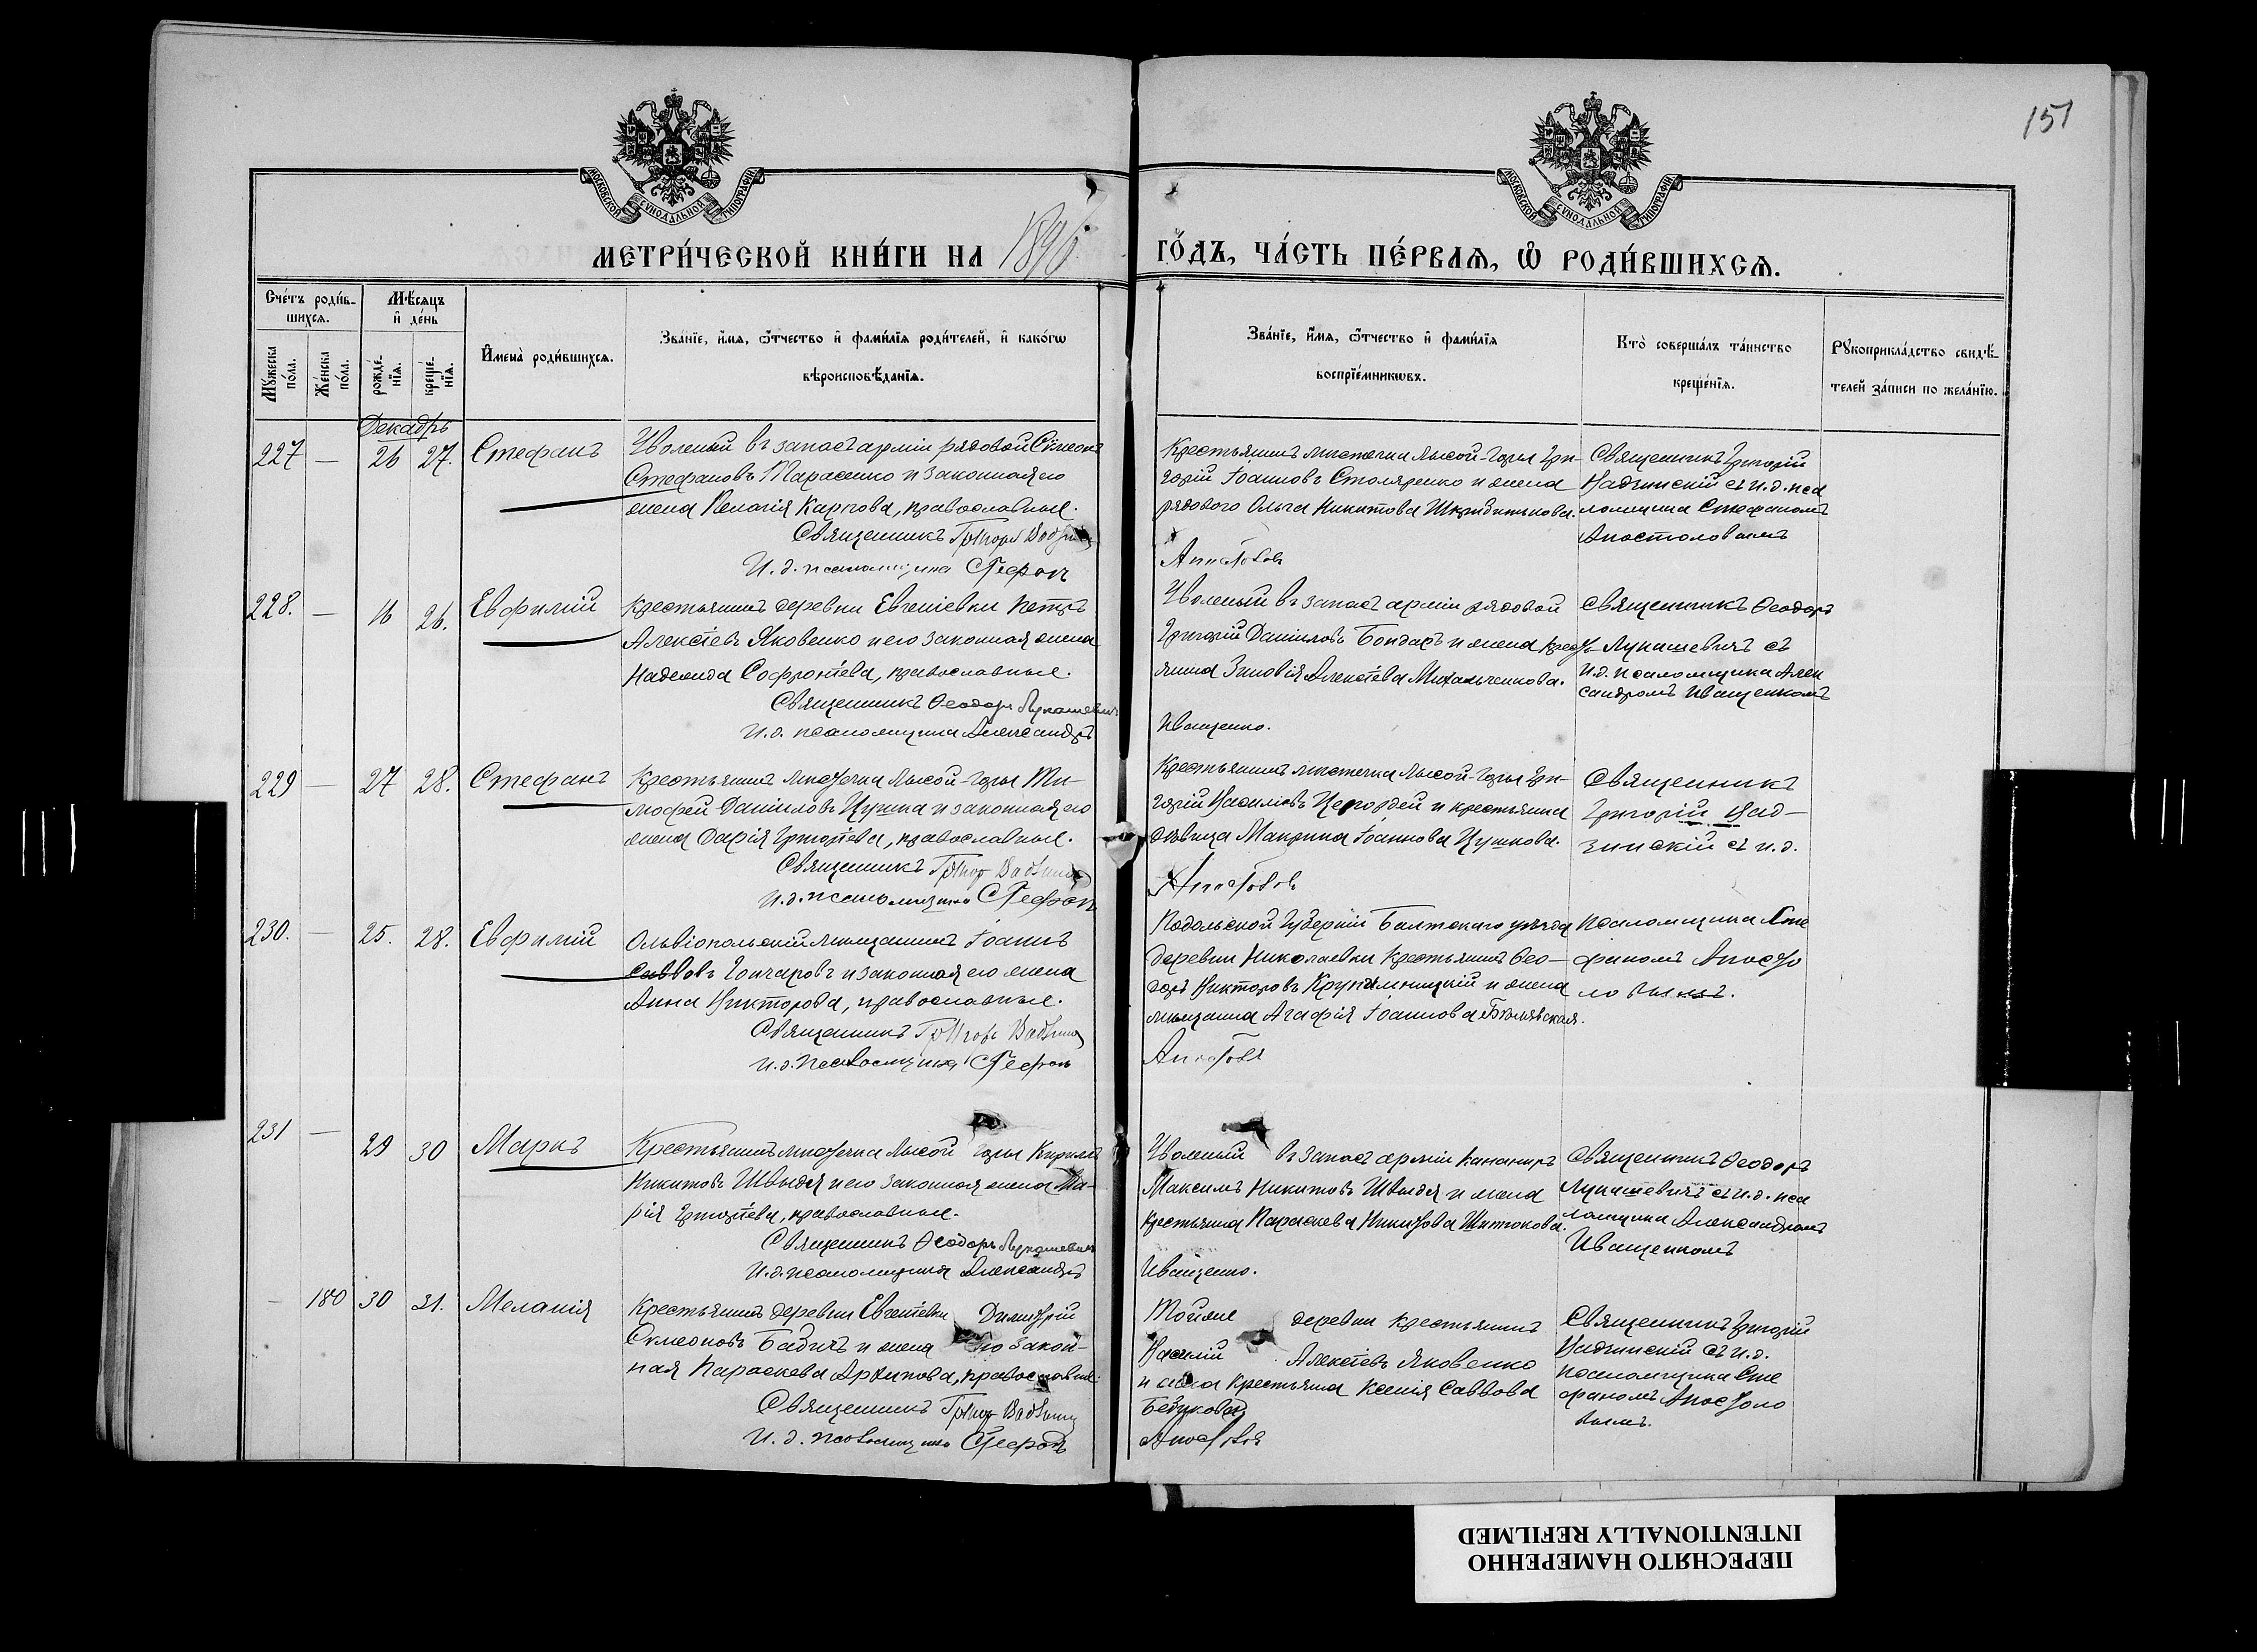 151
МОСКОВСКОЙ СѴНОДАЛЬНОЙ ТИПОГРАФІИ
МОСКОВСКОЙ СѴНОДАЛЬНОЙ ТИПОГРАФІИ
МЕТРИ́ЧЕСКОЙ КНИ́ГИ НА 1896
ГО́ДЪ, ЧА́СТЬ ПЕ́РВАѦ, Ѡ҆ РОДИ́ВШИХСѦ.
Сче́тъ роди́в-
шихсѧ.
Мꙋ́жеска по́ла.
Же́нска по́ла.
Мѣ́сѧцъ
и҆ де́нь
рожде́-
нїѧ.
креще́-
нїѧ.
И҆мена̀ роди́вшихсѧ.
Зва́нїе, и҆́мѧ, ѻ҆́тчество и҆ фами́лїѧ роди́телей, и҆ како́гѡ
вѣроисповѣ́данїѧ.
Зва́нїе, и҆́мѧ, ѻ҆́тчество и҆ фами́лїѧ
воспрїе́мникѡвъ.
Кто̀ соверша́лъ та́инство
креще́нїѧ.
Рꙋкоприкла́дство свидѣ́-
телей за́писи по жела́нїю.
Декабрь
227 — 26 27. Стефанъ
Уволеный въ запасъ арміи рядовой Симеонъ
Стефановъ Тарасенко и законная его
жена Пелагія Карпова, православные.
Священникъ Григорій
И. д. псаломщика Стефан
Крестьянинъ мѣстечка Лысой-Горы Гри-
горій Іоанновъ Столяренко и жена
рядового Ольга Никитова
Апостолов
Священникъ Григорій
Надзинскій съ и. д. пса
ломщика Стефаномъ
Апостоловымъ
228. — 16 26. Евфимій
Крестьянинъ деревни Евгеніевки Петръ
Алексіевъ Яковенко и его законная жена
Надежда Софроніева, православные.
Священникъ Ѳеодоръ Лукашевичъ
И. д. псаломщика Александръ
Уволеный въ запасъ арміи рядовой
Григорій Даниловъ Бондарь и жена крестья
янина Зиновія Алексіева Михальченкова.
Иващенко.
Священникъ Ѳеодоръ
Лукашевичъ съ
и. д. псаломщика Алек
сандромъ Иващенкомъ
229 — 27 28. Стефанъ
Крестьянинъ мѣстечка Лысой-Горы Ти-
мофей Даниловъ Цушка и законная его
жена Дарія Григоріева, православные.
Священникъ Григор
И. д. псаломщика Стефан
Крестьянинъ мѣстечка Лысой-Горы Гри-
горій Василіевъ и крестьянка
дѣвица Макрина Іоаннова Цушкова.
Апостолов
Священникъ
Григорій Над-
зинскій съ и. д.
230. — 25. 28. Евфимій
Ольвіопольскій мѣщанинъ Іоаннъ
Саввовъ Гончаровъ и законная его жена
Анна Викторова, православные.
Священникъ Григорій
И. д. псаломщика Стефан
Подольской Губерніи Балтскаго уѣзда
деревни Николаевки крестьянинъ Ѳео-
доръ Викторовъ и жена
мѣщанина Агафія Іоаннова Бѣлявская.
Апостолов
псаломщика Сте
фаномъ Апосто
ловымъ.
231 — 29 30 Маркъ
Крестьянинъ мѣстечка Лысой Горы Кириллъ
Никитовъ Швыдкя и его законная жена Ма-
рія Григоріева, православные.
Священникъ Ѳеодоръ Лукашевичъ
И. д. псаломщика Александръ
Уволеный въ запасъ арміи канониръ
Максимъ Никитовъ и жена
крестьянина Параскева
Иващенко.
Священникъ Ѳеодоръ
Лукашевичъ съ и. д. пса
ломщика Александромъ
Иващенкомъ
— 180 30 31. Меланія
Крестьянинъ деревни Евгеніевки Димитрій
Симеоновъ Бабичъ и жена его закон-
ная Параскева Архипова, православные.
Священникъ Григор
И. д. псаломщика Стефан
Тойже деревни крестьянинъ
Василій Алексіевъ Яковенко
и жена крестьянина Ксенія Саввова
Апостолов
Священникъ Григорій
Надзинскій съ и. д.
псаломщика Сте
фаномъ Апостоло
вымъ.
ПЕРЕСНЯТО НАМЕРЕННО
INTENTIONALLY REFILMED